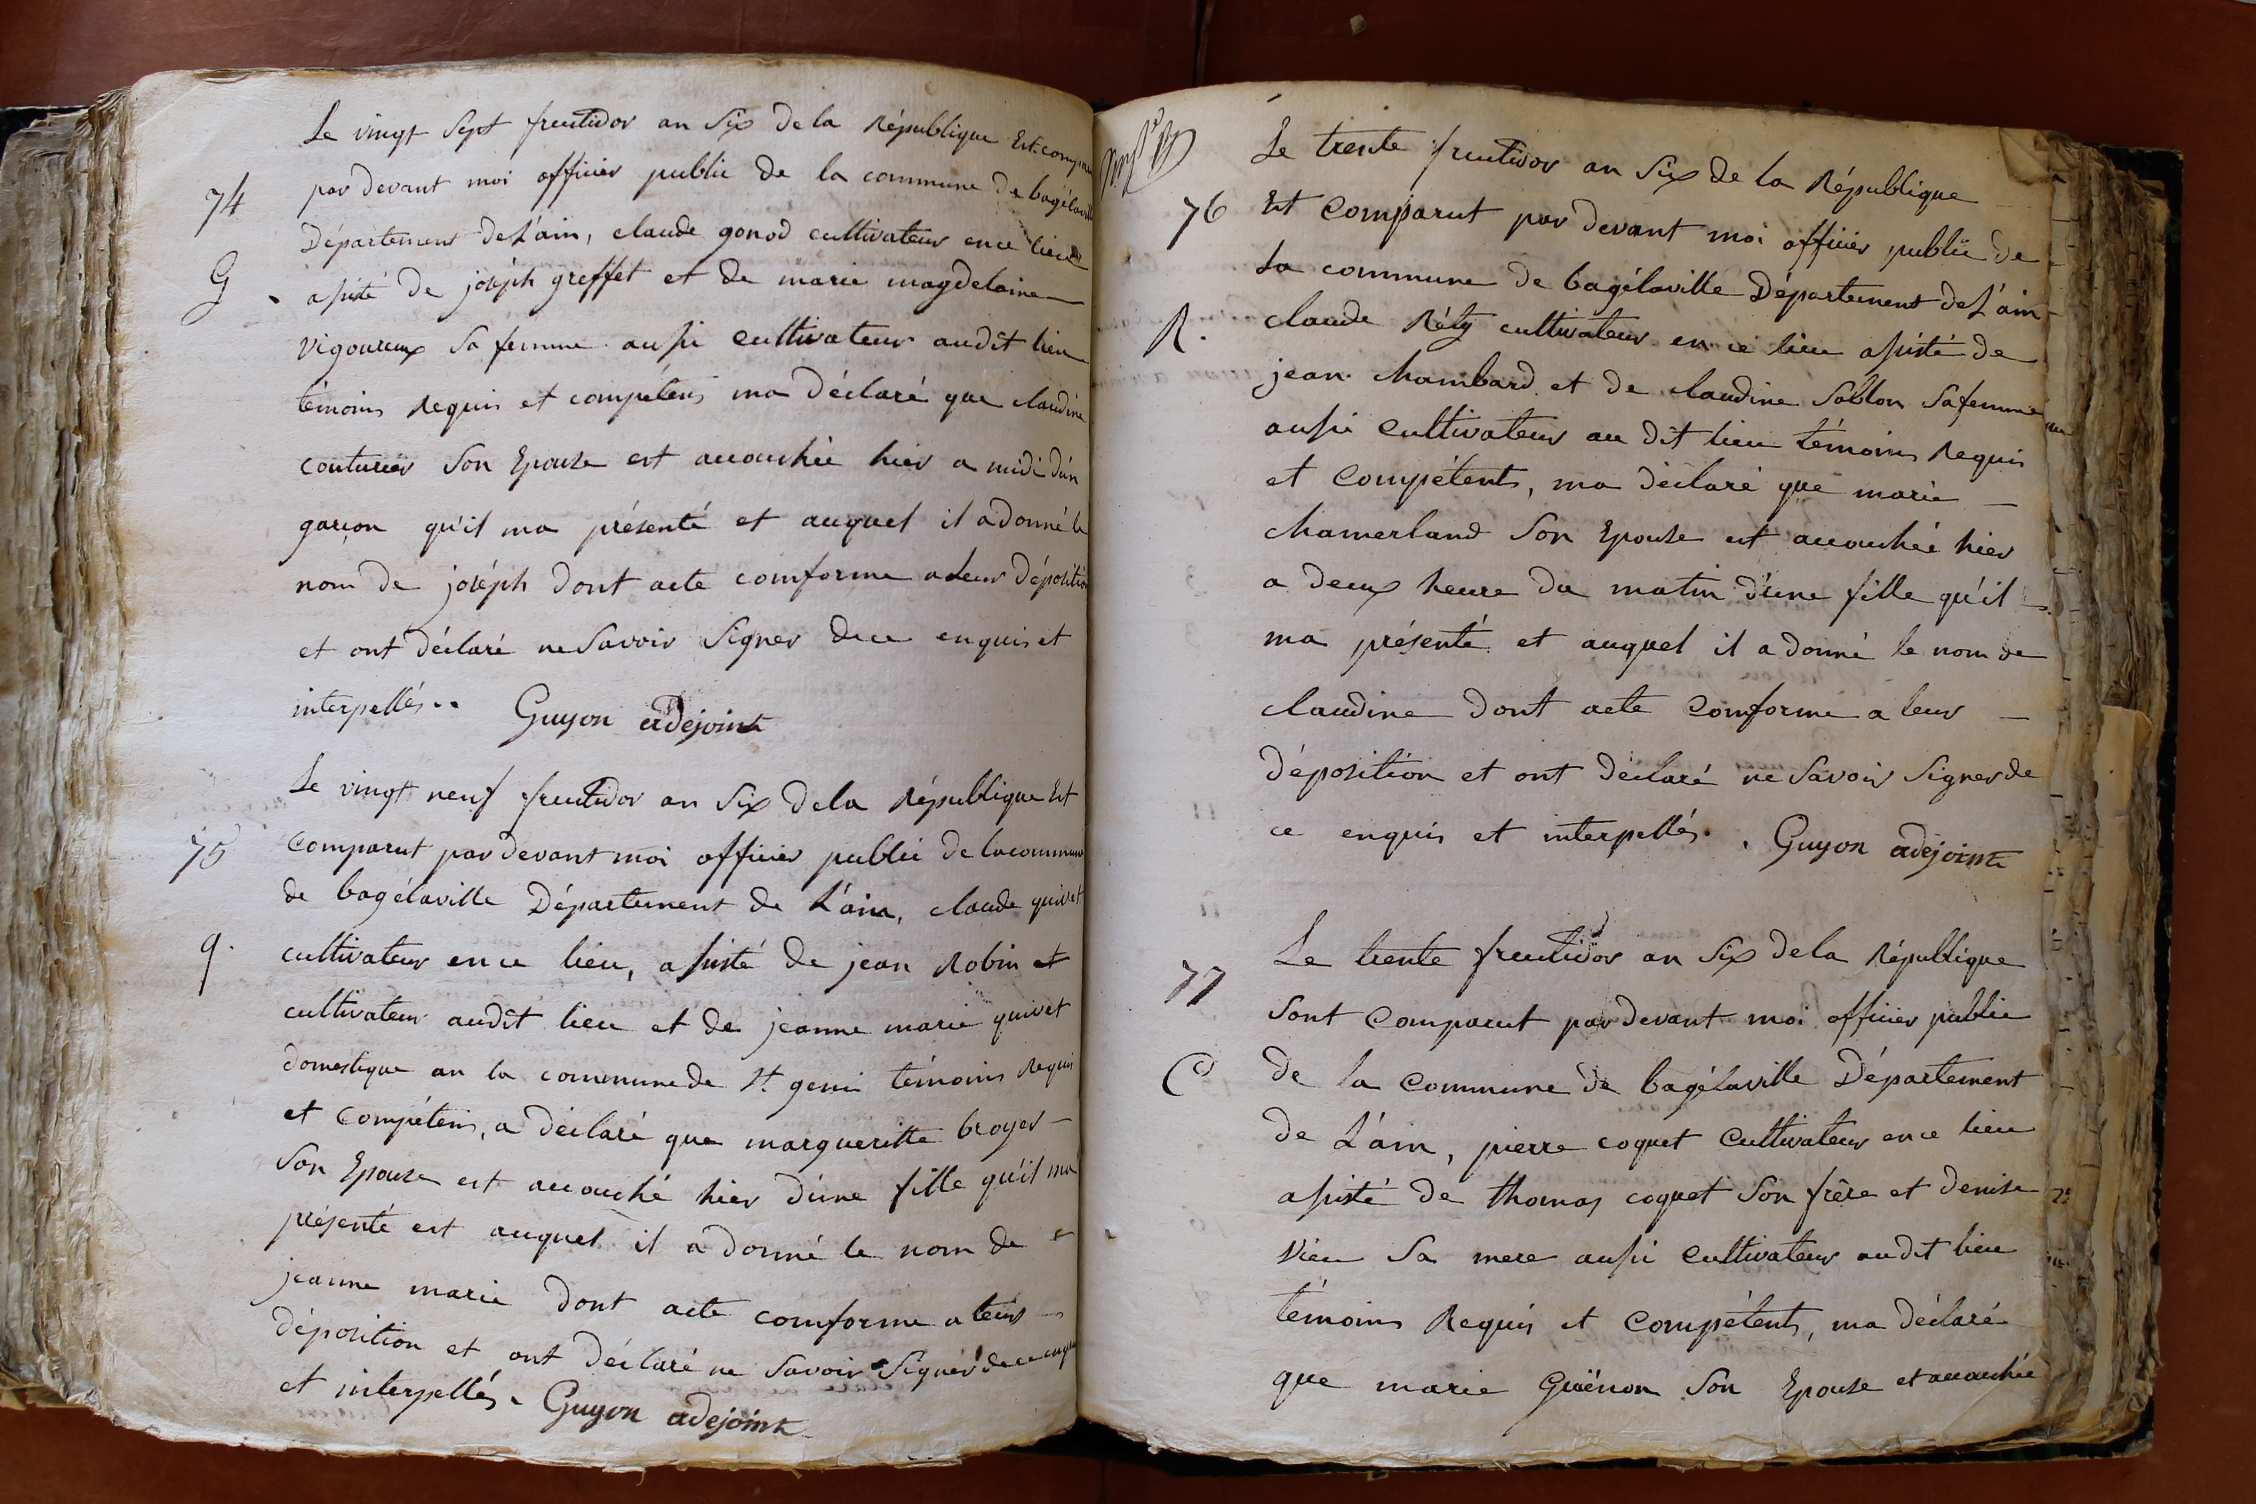 Le vingt Sept fructidor an Six de la République Est compar
74
par devant moi officier public de la commune de bagélaville
Département de L'ain, claude gonod cultivateur en ce lieu
G
assisté de joséph greffet et de marie magdelaine
vigoureux Sa femme aussi cultivateur audit lieu
témoins Requis et compétens ma déclaré que claudine
couturier Son Epouse est accouchée hier a midi d'un
garçon qu'il ma présenté et auquel il a donné le
nom de joséph dont acte comforme a leur déposition
et ont déclaré ne Savoir Signer de ce enquis et
interpellés..
Guyon adejoint
Le vingt neuf fructidor an Six de la République Est
75
Comparut par devant moi officier public de la commune
de bagélaville Département de L'ain, claude quivet
q.
cultivateur en ce lieu, assisté de jean Robin et
cultivateur audit lieu et de jeanne marie quivet
domestique an la commune de St. geni témoins Requis
et Compétens, a déclaré que margueritte broyer
Son Epouse est accouché hier d'une fille qu'il ma
présenté est auquel il a donné le nom de
jeanne marie dont acte comforme a leur
déposition et ont déclaré ne Savoir Signer de ce enqui
et interpellés.
Guyon adejoint
Le trente fructidor an Six de la République
76
Est Comparut par devant moi officier public de
La commune de bagélaville Département de L'ain
R.
claude Réty cultivateur en ce lieu assisté de
jean chambard et de claudine Sablon Sa femme
aussi Cultivateur au dit lieu témoins Requis
et Compétents, ma déclaré que marie
chamerland Son Epouse est accouchée hier
a deux heure du matin d'une fille qu'il
ma présenté et auquel il a donné le nom de
claudine dont acte Comforme a leur
déposition et ont déclaré ne Savoir Signer de
ce enquis et interpellés.
Guyon adejoint
Le trente fructidor an Six de la République
77
Sont Comparut par devant moi officier public
C
de la Commune de bagélaville Département
de L'ain, pierre coquet Cultivateur en ce lieu
assisté de thomas coquet Son frère et denise
vieu Sa mere aussi Cultivateur audit lieu
témoins Requis et Compétents, ma déclaré
que marie Guénon Son Epouse et accouchée